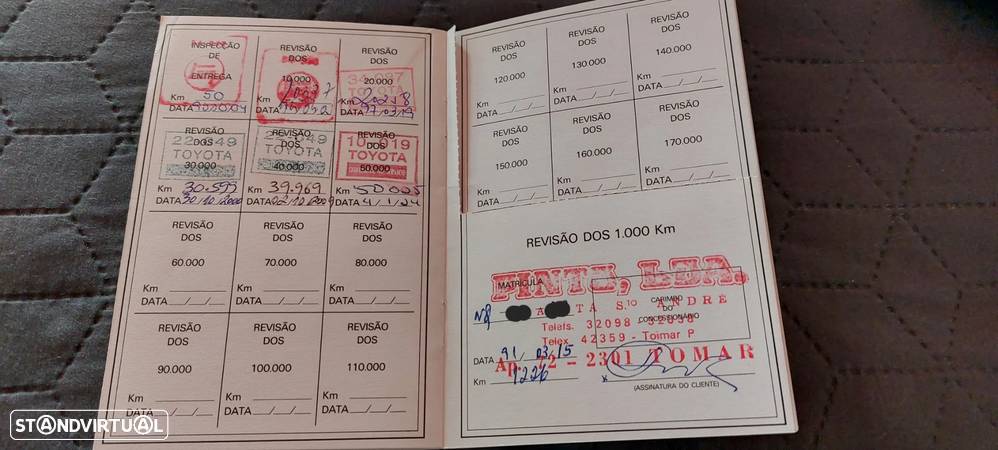 INSPECÇÃO DE ENTREGA
Km 50
DATA
REVISÃO DOS 10.000
Km
DATA
REVISÃO DOS 20.000
Km
DATA 97/03/19
REVISÃO DOS 30.000
TOYOTA
Km 30.599
DATA 30/10/2000
REVISÃO DOS 40.000
TOYOTA
Km 39.969
DATA 02/10/2009
REVISÃO DOS 50.000
10-019
TOYOTA
Km 50 005
DATA 4/1/24
REVISÃO DOS 60.000
Km
DATA __/__/__
REVISÃO DOS 70.000
Km
DATA __/__/__
REVISÃO DOS 80.000
Km
DATA __/__/__
REVISÃO DOS 90.000
Km
DATA __/__/__
REVISÃO DOS 100.000
Km
DATA __/__/__
REVISÃO DOS 110.000
Km
DATA __/__/__
REVISÃO DOS 120.000
Km
DATA __/__/__
REVISÃO DOS 130.000
Km
DATA __/__/__
REVISÃO DOS 140.000
Km
DATA __/__/__
REVISÃO DOS 150.000
Km
DATA __/__/__
REVISÃO DOS 160.000
Km
DATA __/__/__
REVISÃO DOS 170.000
Km
DATA __/__/__
REVISÃO DOS 1.000 Km
LDA.
MATRÍCULA
CARIMBO DO CONCESSIONÁRIO
S.to ANDRÉ
Telefs. 32098 - 32938
Telex 42359 - Toimar P
Ap. 72 - 2301 TOMAR
DATA 91/03/15
Km 1226
(ASSINATURA DO CLIENTE)
STANDVIRTUAL